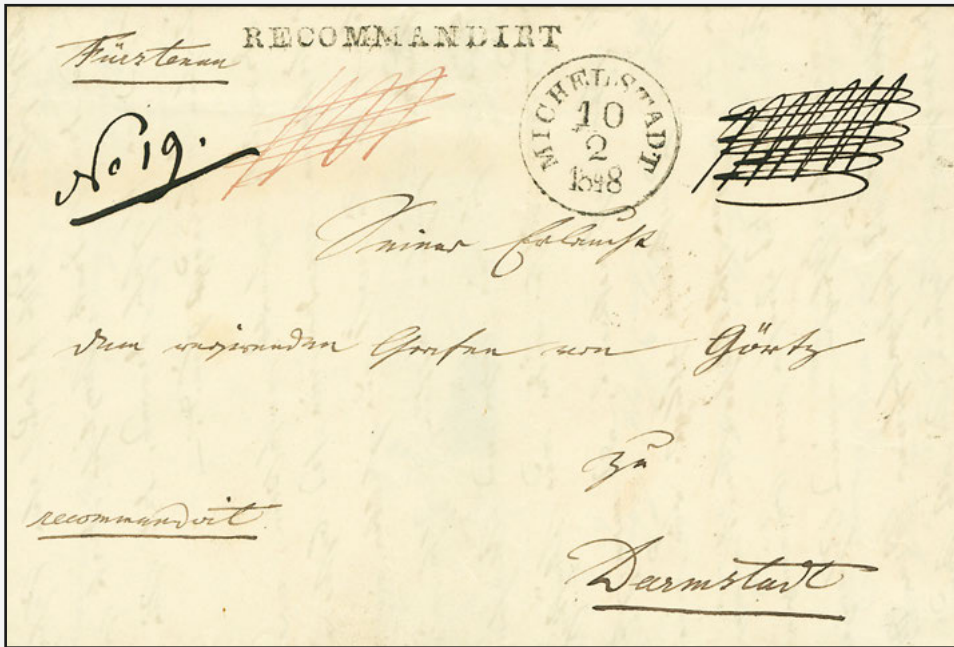 RECOMMANDIRT
Fürstenau
No 19.
MICHELSTADT
10
2
1848
Seiner Erlaucht
dem regierenden Grafen von Görtz
zu
recommandirt
Darmstadt